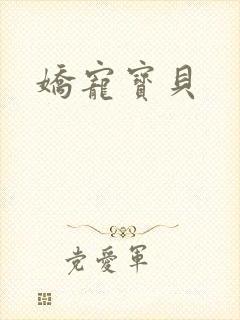 嬌寵寶貝
党愛軍